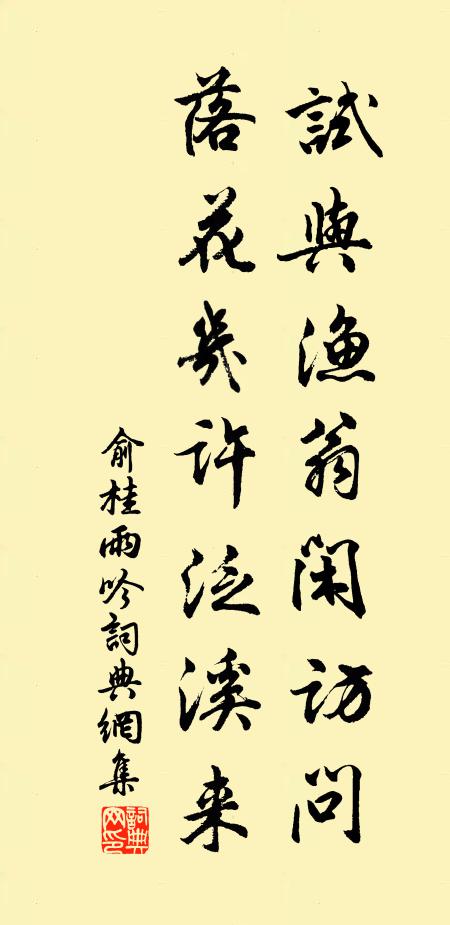 試與漁翁閑訪問
落花幾許泛溪来
俞桂雨吟詞典網集
詞典网印